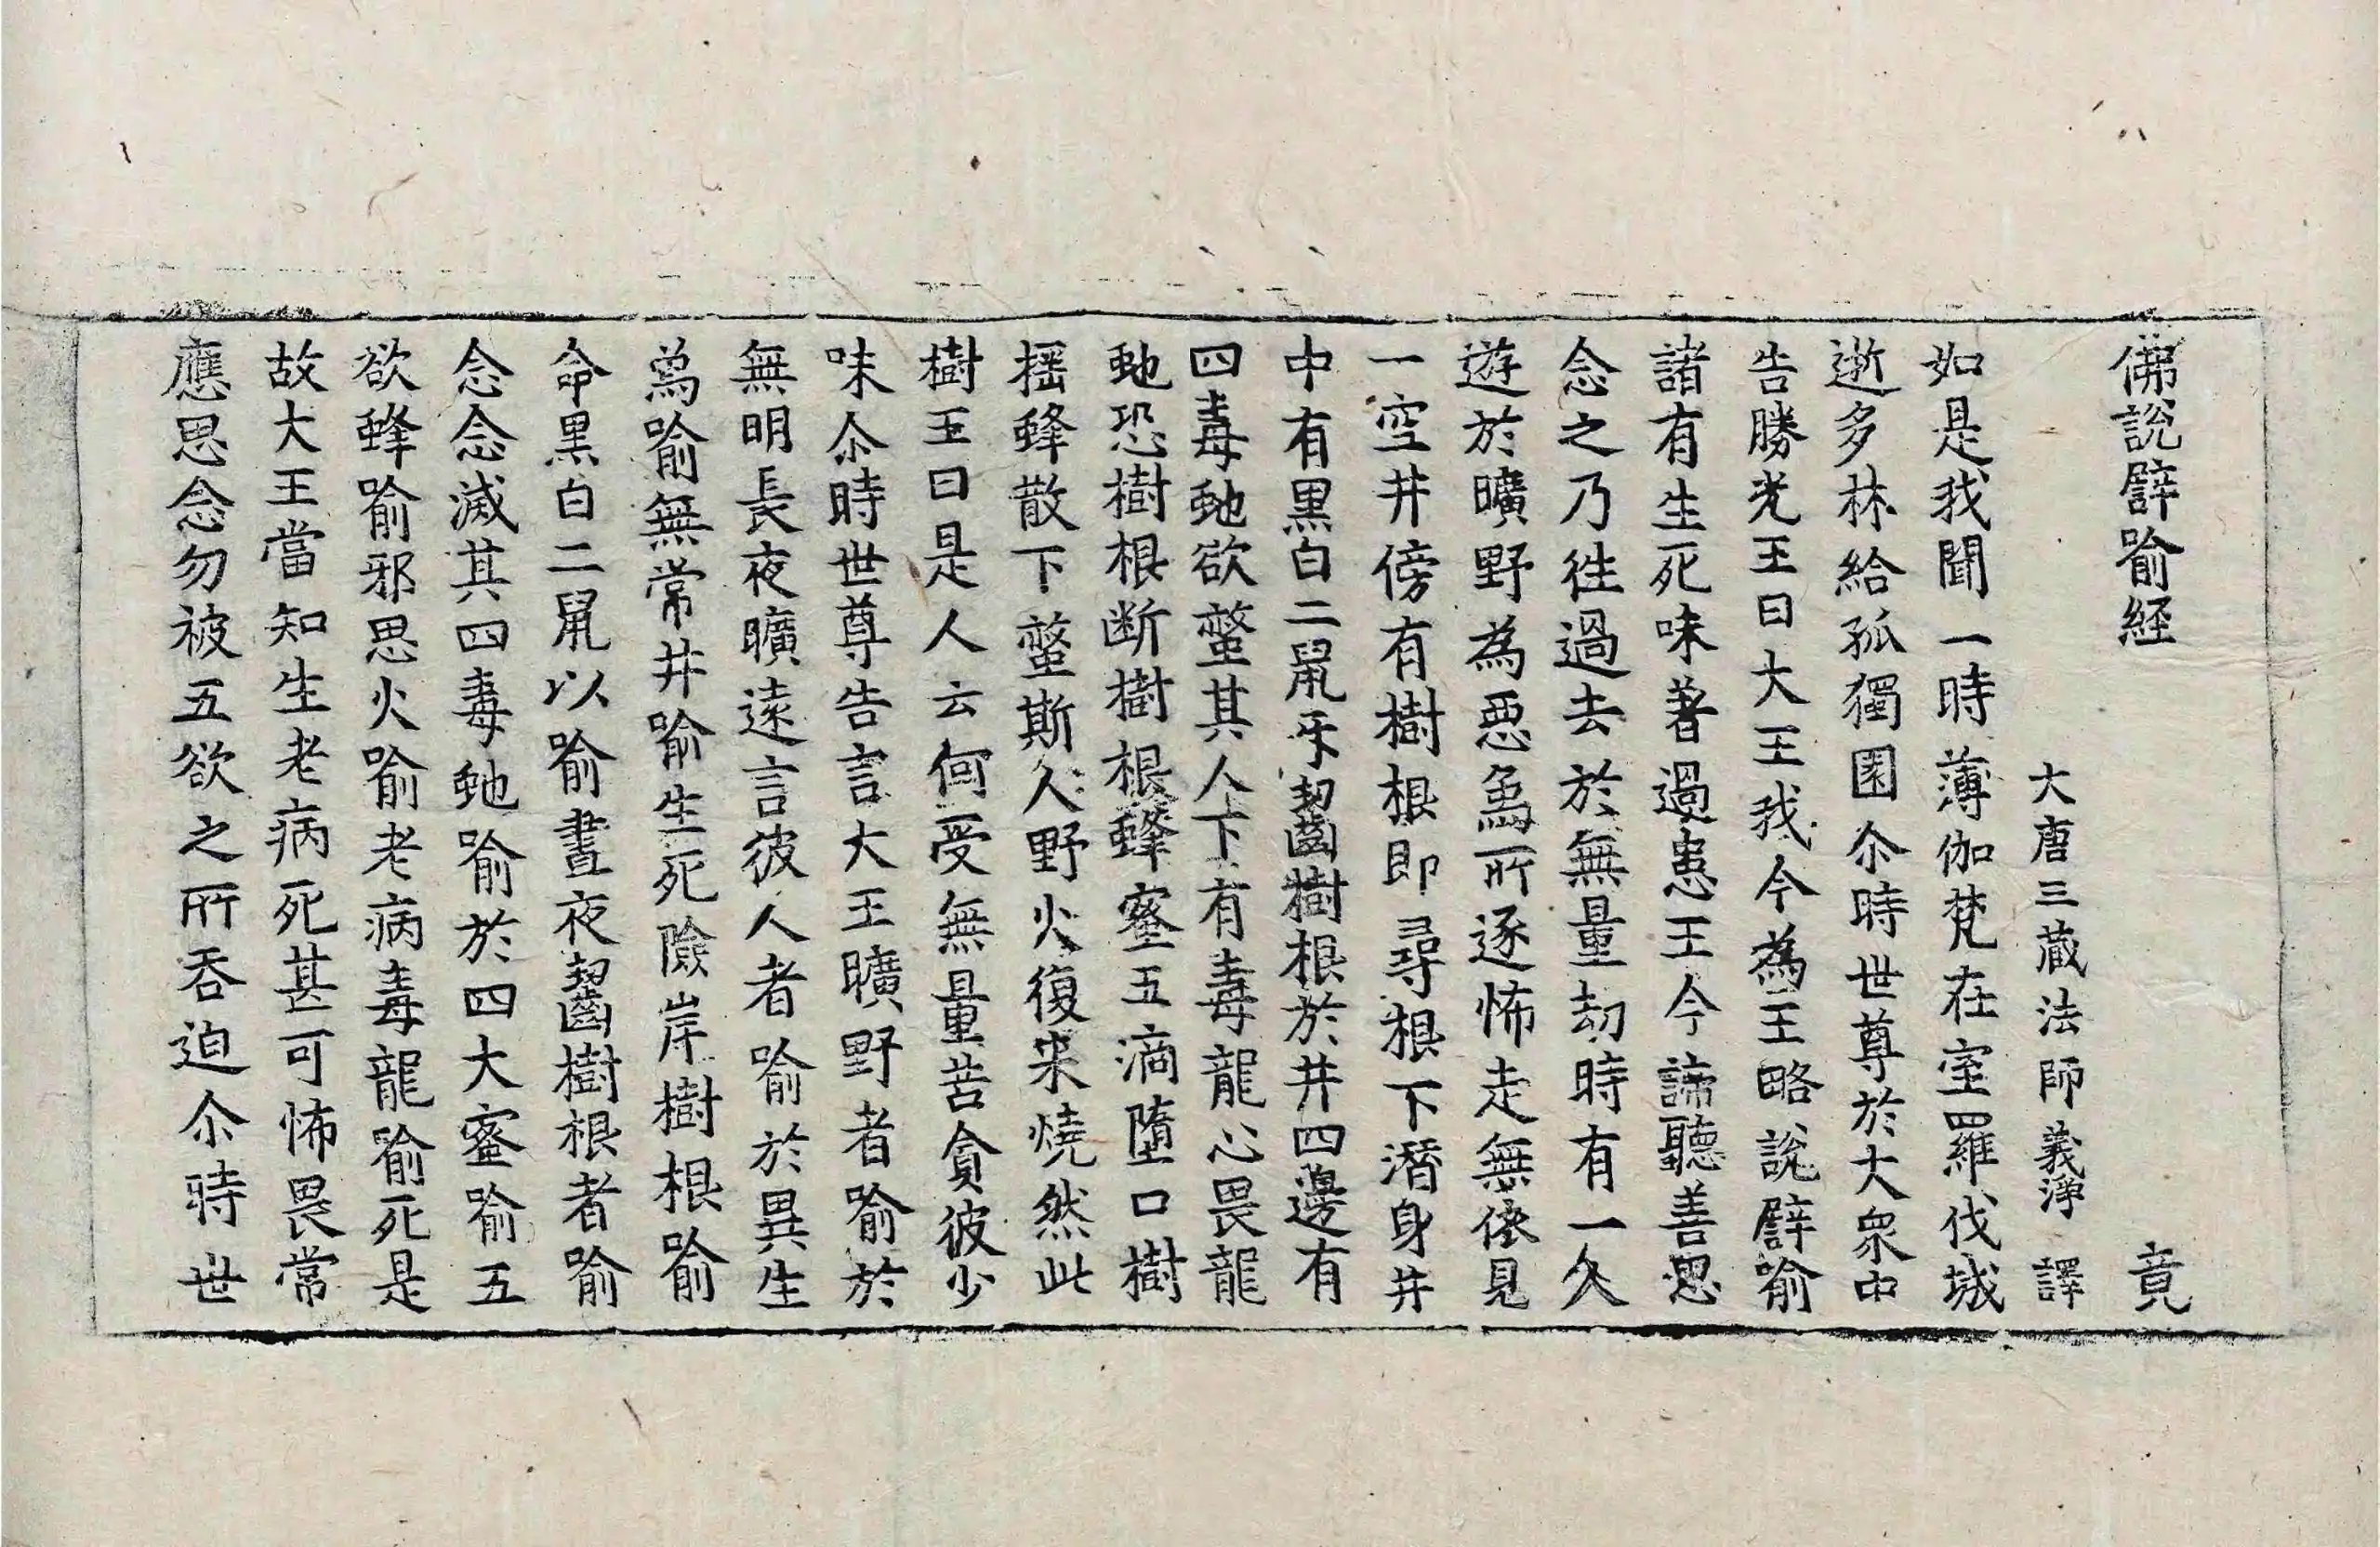 佛說譬喻経 竟
大唐三蔵法師義淨 譯
如是我聞一時薄伽梵在室羅伐城
逝多林給孤獨園尒時世尊於大衆中
告勝光王曰大王我今為王略說譬喻
諸有生死味著過患王今諦聽善思
念之乃往過去於無量劫時有一人
遊於曠野為惡象所逐怖走無依見
一空井傍有樹根即尋根下潛身井
中有黒白二鼠牙齧樹根於井四邊有
四毒虵欲螫其人下有毒龍心畏龍
虵恐樹根断樹根蜂蜜五滴墮口樹
揺蜂散下螫斯人野火復来燒然此
樹王曰是人云何受無量苦貪彼少
味尒時世尊告言大王曠野者喻於
無明長夜曠遠言彼人者喻於異生
象喻無常井喻生死險岸樹根喻
命黒白二鼠以喻晝夜齧樹根者喻
念念滅其四毒虵喻於四大蜜喻五
欲蜂喻邪思火喻老病毒龍喻死是
故大王當知生老病死甚可怖畏常
應思念勿被五欲之所吞迫尒時世